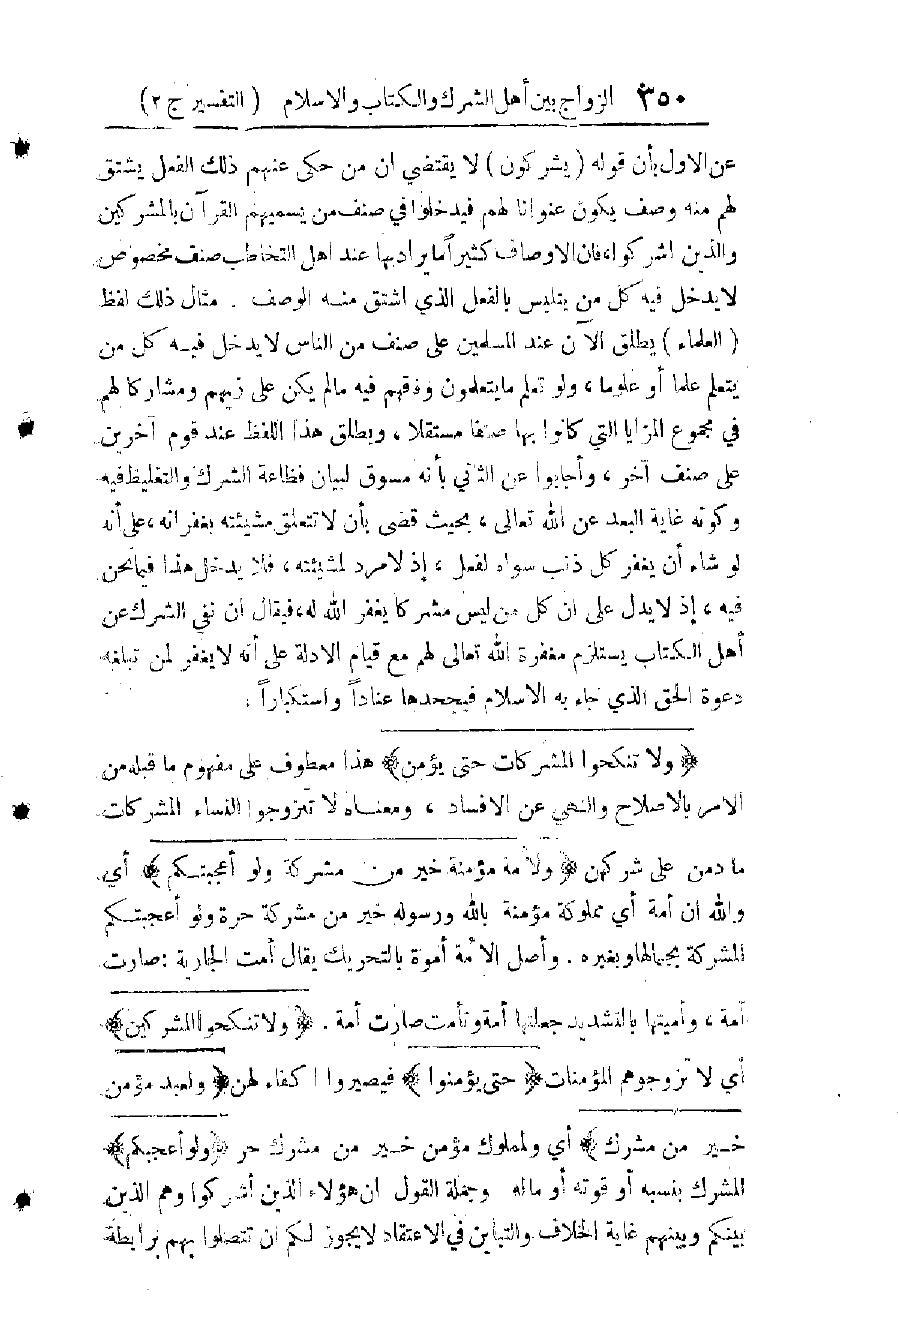 ٣٥٠ الزواج بين أهل الشرك والكتاب والاسلام ( التفسير ج ٢ )
عن الاول بأن قوله ( يشركون ) لا يقتضي ان من حكى عنهم ذلك الفعل يشتق
لهم منه وصف يكون عنوانا لهم فيدخلوا في صنف من يسميهم القرآن بالمشركين
والذين اشركوا، فان الاوصاف كثيراً ما يراد بها عند اهل التخاطب صنف مخصوص
لا يدخل فيه كل من يتلبس بالفعل الذي اشتق منه الوصف . مثال ذلك لفظ
( العلماء ) يطلق الآن عند المسلمين على صنف من الناس لا يدخل فيه كل من
يتعلم علما أو علوما ، ولو تعلم ما يتعلمون وفاقهم فيه مالم يكن على زيهم ومشاركا لهم
في مجموع المزايا التي كانوا بها صنفا مستقلا ، ويطلق هذا اللفظ عند قوم آخرين
على صنف آخر ، وأجابوا عن الثاني بأنه مسوق لبيان فظاعة الشرك والتغليظ فيه
وكونه غاية البعد عن الله تعالى ، بحيث قضى بأن لا تتعلق مشيئته بغفرانه ، على أنه
لو شاء أن يغفر كل ذنب سواه لفعل ، إذ لا مرد لمشيئته ، فلا يدخل هذا فيما نحن
فيه ، إذ لا يدل على ان كل من ليس مشركا يغفر الله له، فيقال ان نفي الشرك عن
أهل الكتاب يستلزم مغفرة الله تعالى لهم مع قيام الادلة على أنه لا يغفر لمن تبلغه
دعوة الحق الذي جاء به الاسلام فيجحدها عناداً واستكباراً :
﴿ ولا تنكحوا المشركات حتى يؤمن ﴾ هذا معطوف على مفهوم ما قبله من
الامر بالاصلاح والنهي عن الافساد ، ومعناه لا تتزوجوا النساء المشركات
ما دمن على شركهن ﴿ ولأمة مؤمنة خير من مشركة ولو أعجبتكم ﴾ أي
والله ان أمة أي مملوكة مؤمنة بالله ورسوله خير من مشركة حرة ولو أعجبتكم
المشركة بجمالها وبغيره . وأصل الأمة أموة بالتحريك يقال أمت الجارية : صارت
أمة ، وأميتها بالتشديد جعلتها أمة وتأمت صارت أمة . ﴿ ولا تنكحوا المشركين ﴾
أي لا تزوجوهم المؤمنات ﴿ حتى يؤمنوا ﴾ فيصيروا اكفاء لهن ﴿ ولعبد مؤمن
خير من مشرك ﴾ أي ولمملوك مؤمن خير من مشرك حر ﴿ ولو أعجبكم ﴾
المشرك بنسبه أو قوته أو ماله وجملة القول ان هؤلاء الذين أشركوا وهم الذين
بينكم وبينهم غاية الخلاف والتباين في الاعتقاد لا يجوز لكم ان تتصلوا بهم برابطة